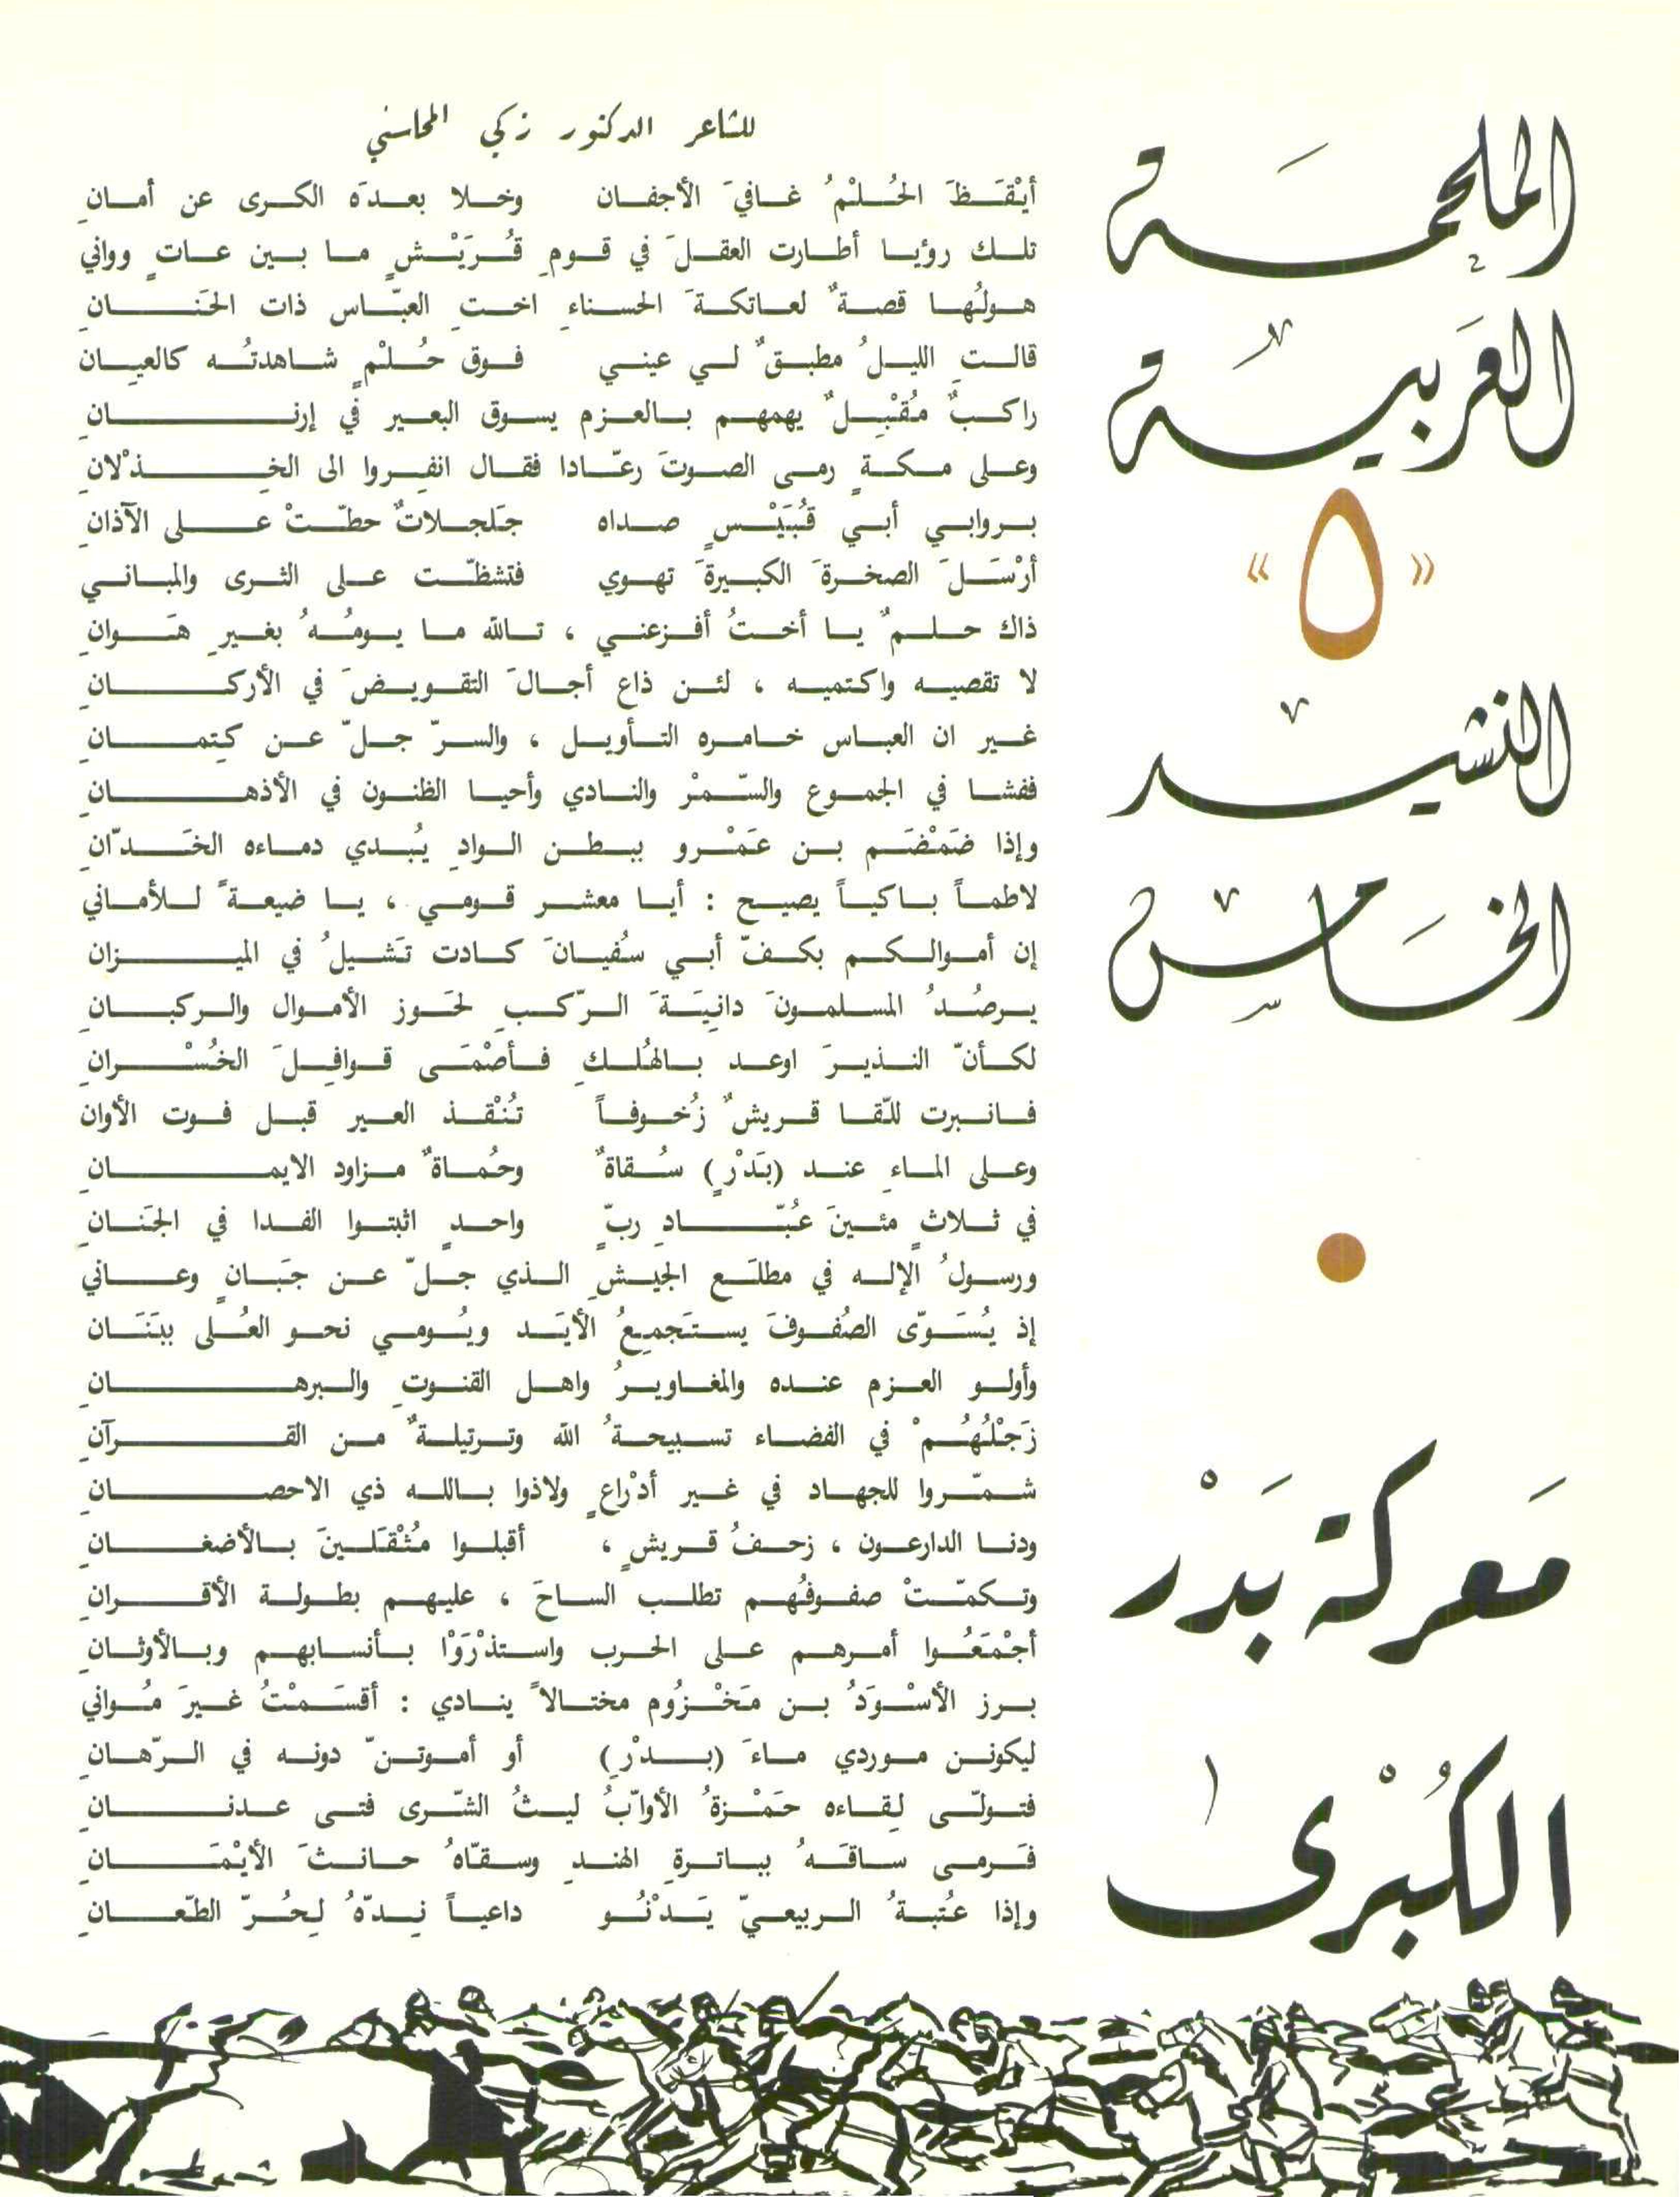 الملحمة
العَربية
« ٥ »
النشيد
الخامس
مَعركة بَدْر
الكُبْرى
للشاعر الدكتور زكي المحاسني
أيْقَظَ الحُلْمُ غافيَ الأجفان وخلا بعدَه الكرى عن أمانِ
تلك رؤيا أطارت العقلَ في قومِ قُرَيْشٍ ما بين عاتٍ وواني
هولُها قصةٌ لعاتكةَ الحسناءِ اختِ العبّاس ذات الحَنانِ
قالتِ الليلُ مطبقٌ لي عيني فوق حُلْمٍ شاهدتُه كالعيانِ
راكبٌ مُقْبِلٌ يهمهم بالعزم يسوق البعير في إرنانِ
وعلى مكةٍ رمى الصوتَ رعّادا فقال انفِروا الى الخِذْلانِ
بروابي أبي قُبَيْسٍ صداه جَلجلاتٌ حطّتْ على الآذانِ
أرْسَلَ الصخرةَ الكبيرةَ تهوي فتشظّت على الثرى والمباني
ذاك حلمٌ يا أختُ أفزعني ، تالله ما يومُهُ بغيرِ هَوانِ
لا تقصيه واكتميه ، لئن ذاع أجالَ التقويضَ في الأركانِ
غير ان العباس خامره التأويل ، والسرّ جلّ عن كتِمانِ
ففشا في الجموع والسّمرْ والنادي وأحيا الظنون في الأذهانِ
وإذا ضَمْضَم بن عَمْرو ببطن الوادِ يُبدي دماءه الخَدّانِ
لاطماً باكياً يصيح : أيا معشر قومي ، يا ضيعةً للأماني
إن أموالكم بكفّ أبي سُفيانَ كادت تَشيلُ في الميزان
يرصُدُ المسلمونَ دانِيَةَ الرّكبِ لحَوز الأموال والركبانِ
لكأنّ النذيرَ اوعد بالهُلكِ فأصْمَى قوافِلَ الخُسْرانِ
فانبرت للّقا قريشٌ زُخوفاً تُنْقذ العير قبل فوت الأوان
وعلى الماءِ عند (بَدْرٍ) سُقاةٌ وحُماةٌ مزاود الايمانِ
في ثلاثٍ مئينَ عُبّادِ ربٍّ واحدٍ اثبتوا الفدا في الجَنانِ
ورسولُ الإله في مطلَع الجيشِ الذي جلّ عن جَبانٍ وعاني
إذ يُسَوّى الصُفوفَ يستَجمِعُ الأيَد ويُومي نحو العُلى ببَنَان
وأولو العزم عنده والمغاويرُ واهل القنوتِ والبرهانِ
زَجْلُهُمْ في الفضاء تسبيحةُ الله وترتيلةٌ من القرآنِ
شمّروا للجهاد في غير أدْراعٍ ولاذوا بالله ذي الاحصانِ
ودنا الدارعون ، زحفُ قريشٍ ، أقبلوا مُثْقَلينَ بالأضغانِ
وتكمّتْ صفوفُهم تطلب الساحَ ، عليهم بطولة الأقرانِ
أجْمَعُوا أمرهم على الحرب واستذْرَوْا بأنسابهم وبالأوثانِ
برز الأسْوَدُ بن مَخْزُوم مختالاً ينادي : أقسَمْتُ غيرَ مُواني
ليكونن موردي ماءَ (بدْرٍ) أو أموتنّ دونه في الرّهانِ
فتولّى لِقاءه حَمْزةُ الأوابُ ليثُ الشّرى فتى عدنانِ
فَرمى ساقَهُ بباترةِ الهندِ وسقّاهُ حانثَ الأيْمَانِ
وإذا عُتبةُ الربيعيّ يَدْنُو داعياً نِدّهُ لِحُرّ الطّعانِ